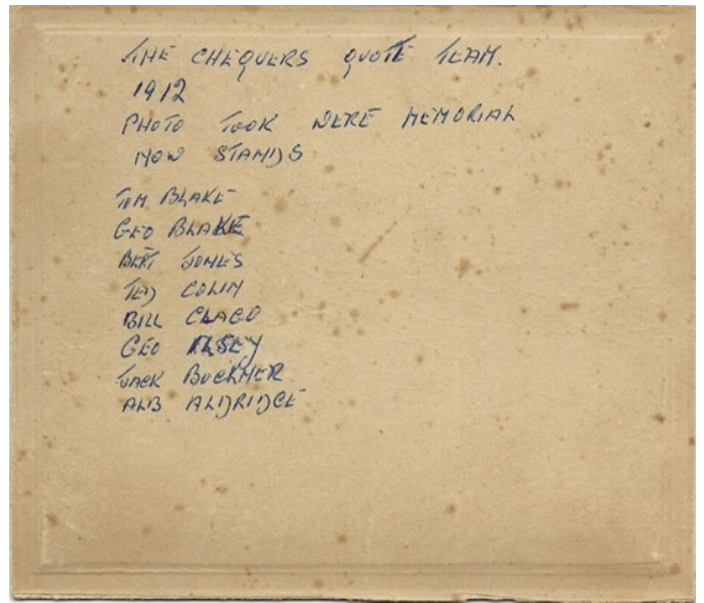 THE CHEQUERS QUOTE TEAM.
1912
PHOTO TOOK WERE MEMORIAL
NOW STANDS
TOM BLAKE
GEO BLAKE
BERT JONES
TED COLIN
BILL
GEO
JACK BUCKMER
ALB ALDRIDGE